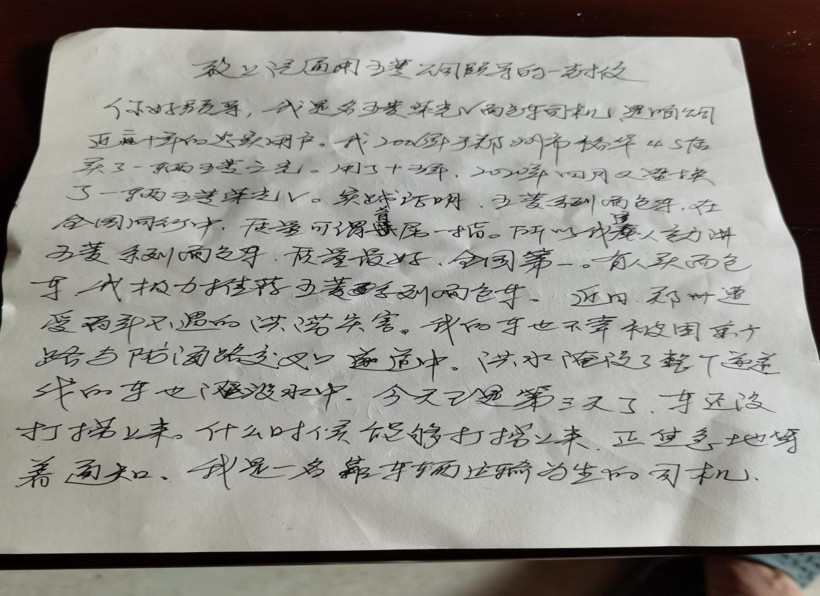 致上汽通用五菱公司领导的一封信
你好领导,我是名五菱荣光V面包车司机,是咱公司
近二十年的忠实用户。我2006年于郑州市裕华4S店
买了一辆五菱之光。用了十三年,2020年四月又置换
了一辆五菱荣光V。实践证明,五菱系列面包车,在
全国同行中,质量可谓首屈一指。所以我逢人主动讲
五菱系列面包车,质量最好,全国第一。有人买面包
车,我极力推荐五菱系列面包车。近日,郑州遭
受百年不遇的洪涝灾害。我的车也不幸被困京广
路与陇海路交叉口隧道中。洪水淹没了整个隧道
我的车也淹没水中。今天已是第三天了,车还没
打捞上来。什么时候能够打捞上来,正焦急地等
着通知。我是一名靠车辆运输为生的司机.